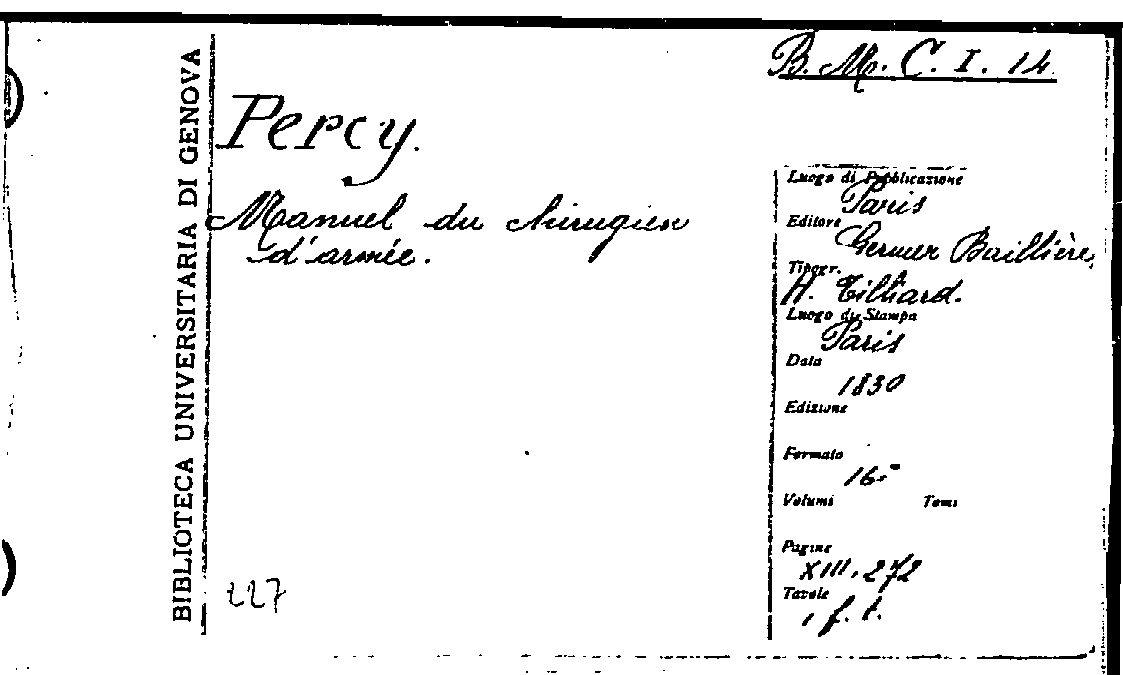 B. M. C. I. 14
BIBLIOTECA UNIVERSITARIA DI GENOVA
Percy.
Manuel du chirugien
d'armée.
Luogo di Pubblicazione
Paris
Editore
Germer Baillière,
Tipogr.
H. Tilliard.
Luogo di Stampa
Paris
Data
1830
Edizione
Formato
16°
Volumi Tomi
Pagine
XIII, 272
Tavole
, f. t.
227